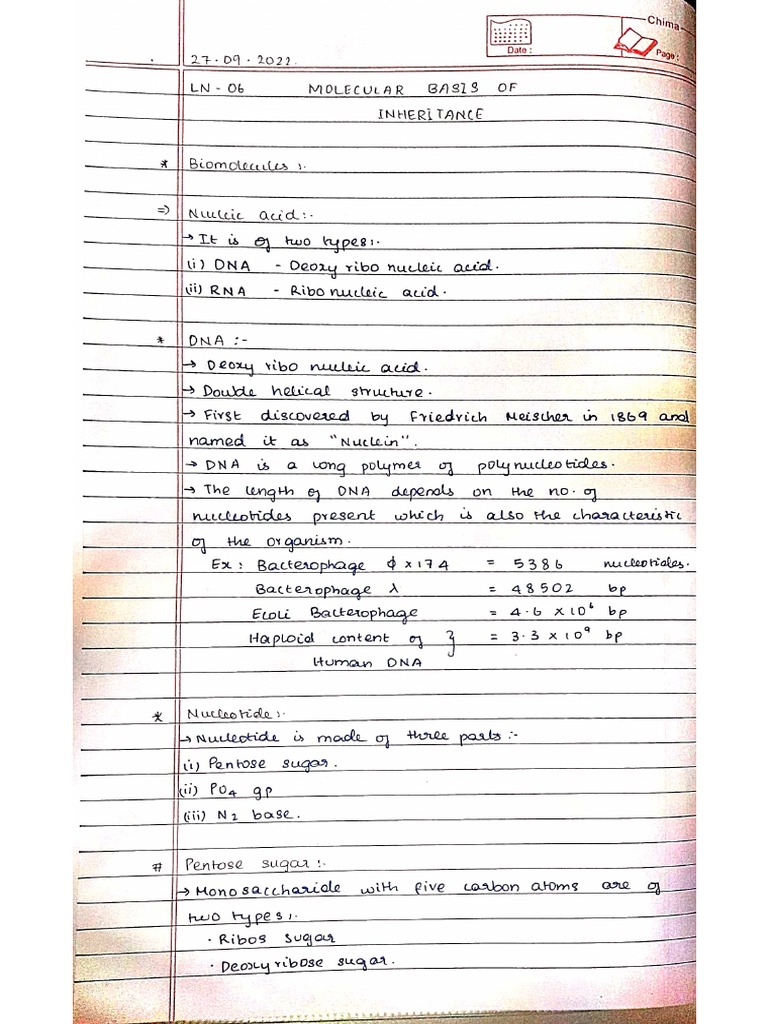 Chima
Date :
Page :
27.09.2022.
LN - 06 MOLECULAR BASIS OF
INHERITANCE
* Biomolecules :-
=> Nucleic acid :-
→ It is of two types :-
(i) DNA - Deoxy ribo nucleic acid.
(ii) RNA - Ribo nucleic acid.
* DNA :-
→ Deoxy ribo nucleic acid.
→ Double helical structure.
→ First discovered by Friedrich Meischer in 1869 and
named it as "Nuclein".
→ DNA is a long polymer of polynucleotides.
→ The length of DNA depends on the no. of
nucleotides present which is also the characteristic
of the organism.
Ex : Bacterophage ϕ x 174 = 5386 nucleotides.
Bacterophage λ = 48502 bp
Ecoli Bacterophage = 4.6 x 10⁶ bp
Haploid content of } = 3.3 x 10⁹ bp
Human DNA
* Nucleotide :-
→ Nucleotide is made of three parts :-
(i) Pentose sugar.
(ii) PO4 gp
(iii) N2 base.
# Pentose sugar :-
→ Monosaccharide with five carbon atoms are of
two types :-
· Ribos sugar
· Deoxyribose sugar.